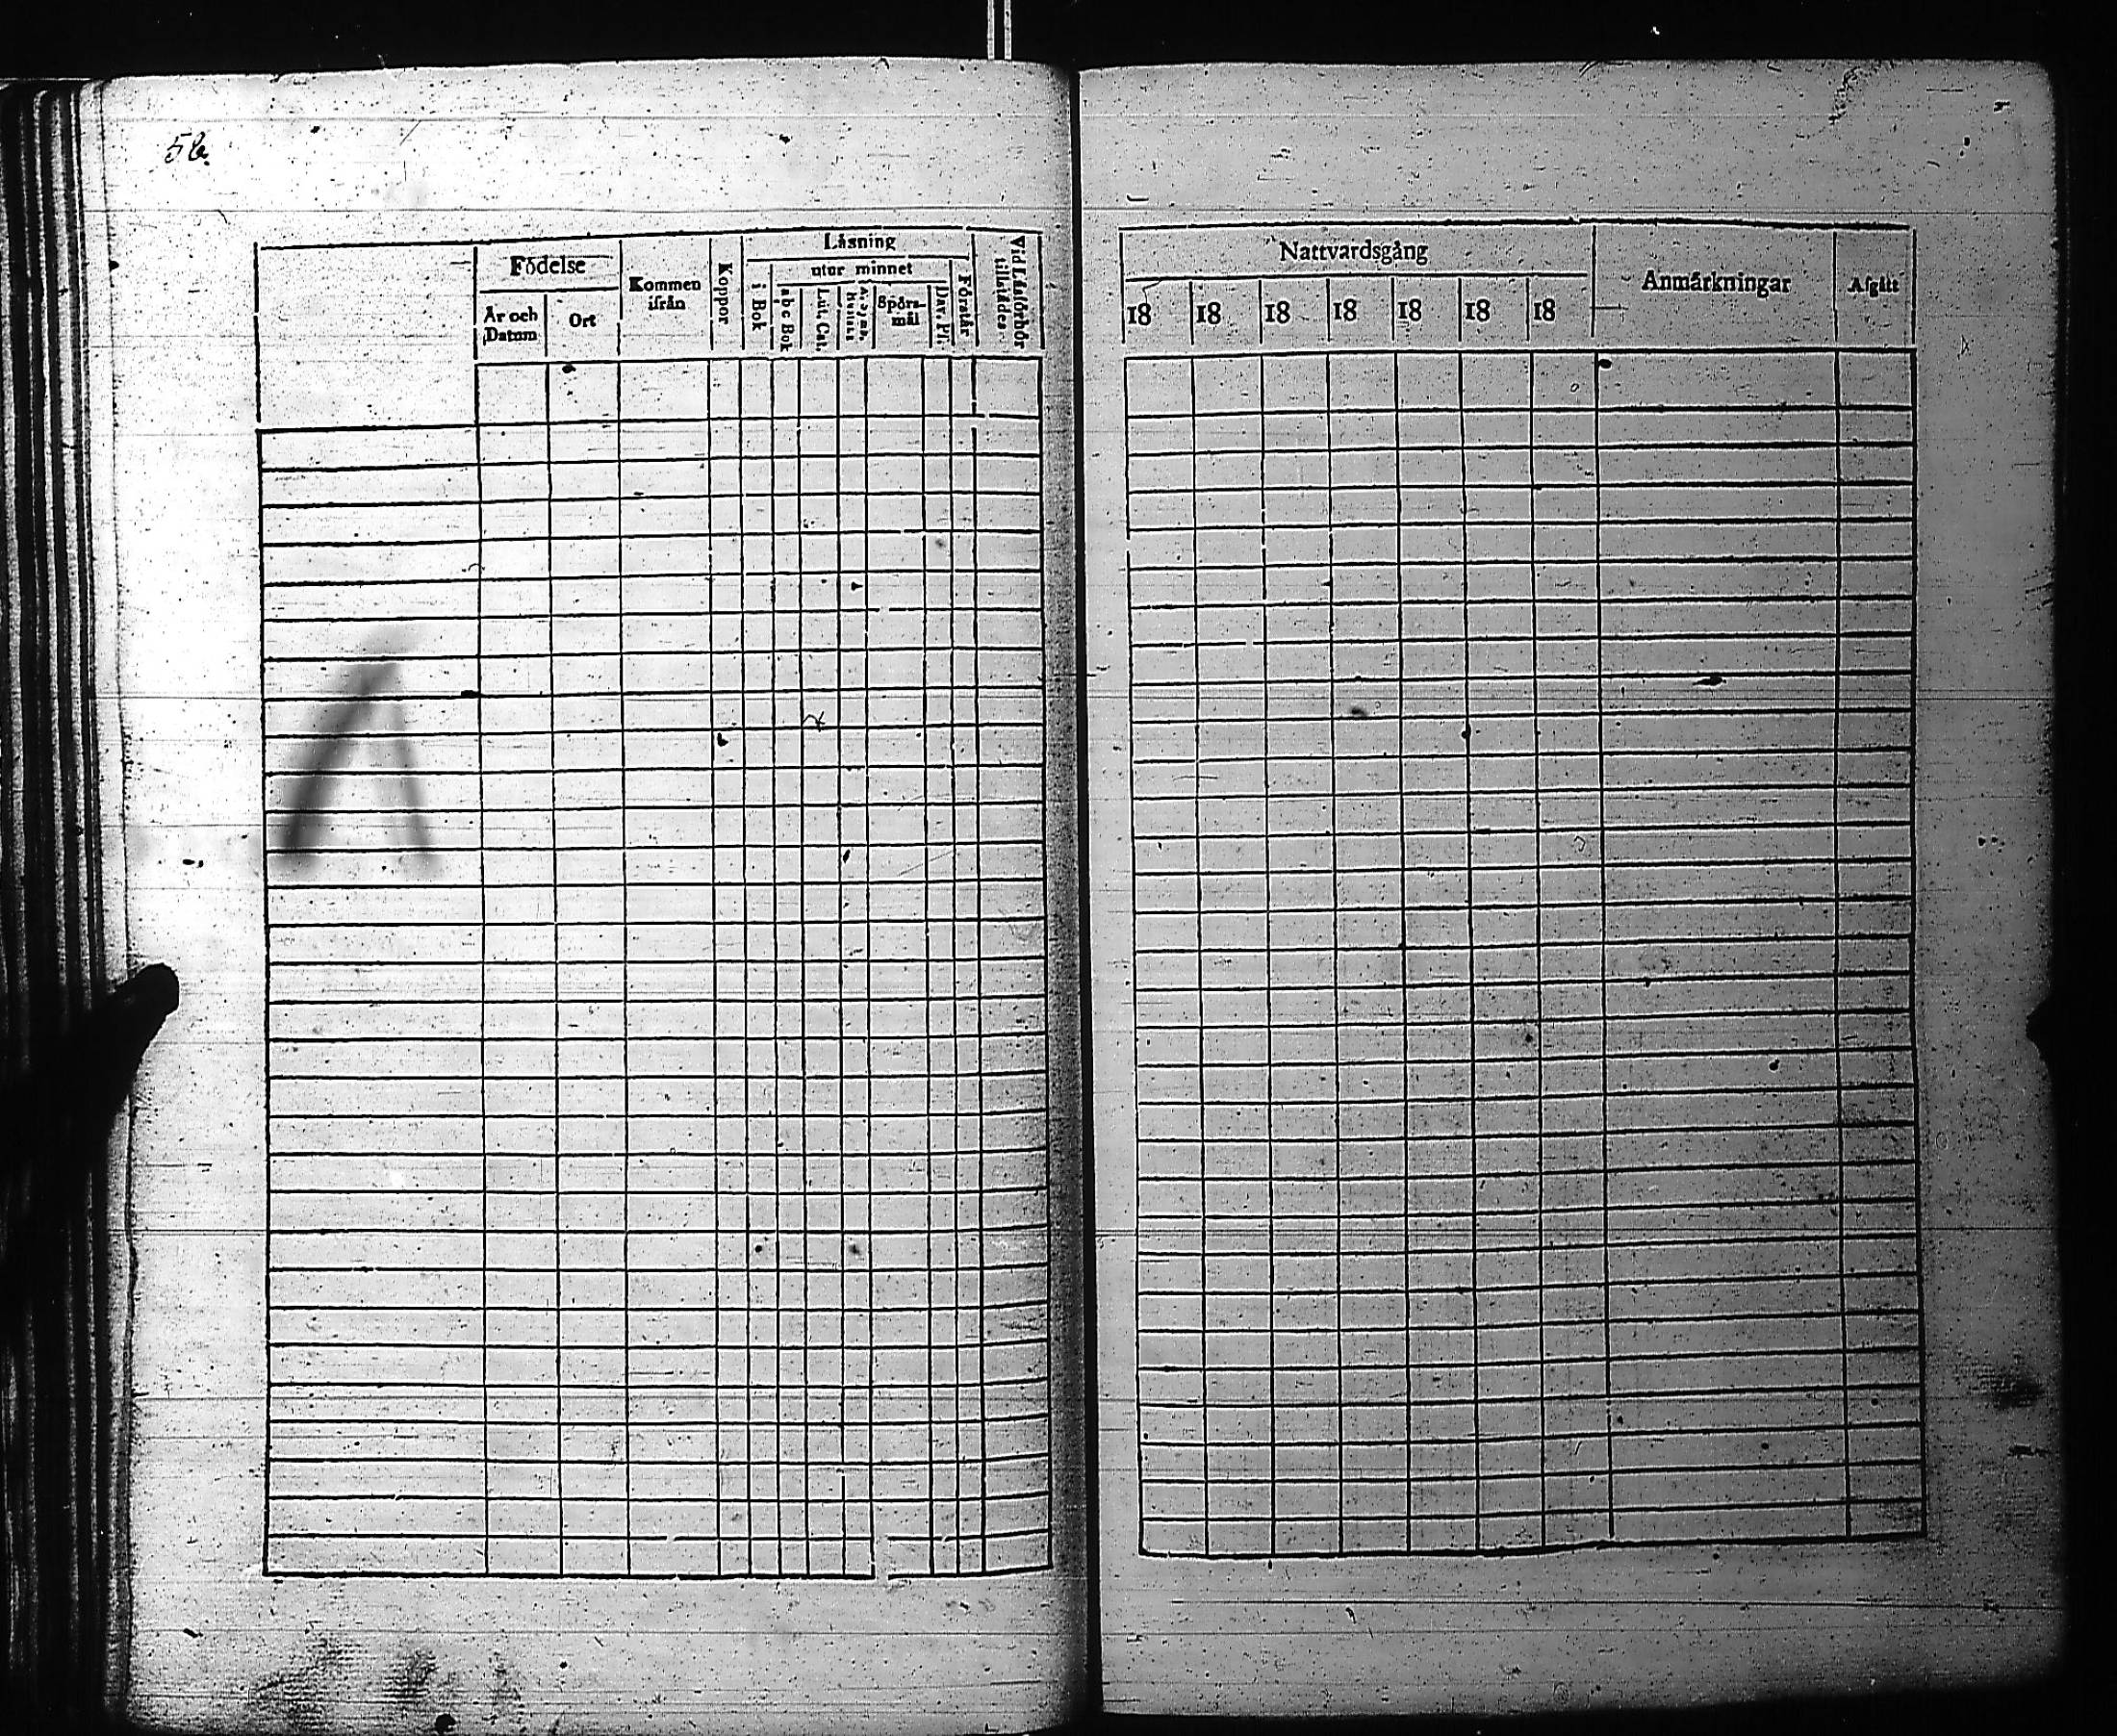 56.
Födelse
År och Datum
Ort
Kommen ifrån
Koppor
Läsning
i Bok
utur minnet
abc Bok
Lut. Cat.
Spörs-mål
Dav. Ps.
Förstår
Vid Läsförhör tillstädes
Nattvardsgång
18 18 18 18 18 18 18
Anmärkningar
Afgått